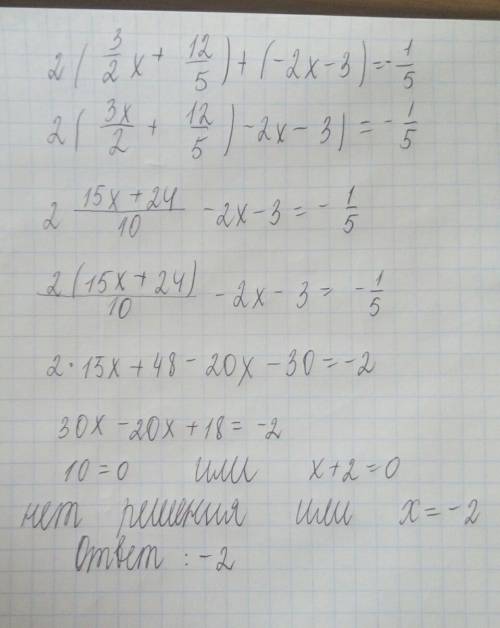 2(3/2 x + 12/5) + (-2x - 3) = -1/5
2(3x/2 + 12/5) - 2x - 3) = -1/5
2 15x + 24/10 - 2x - 3 = -1/5
2(15x + 24)/10 - 2x - 3 = -1/5
2 · 15x + 48 - 20x - 30 = -2
30x - 20x + 18 = -2
10 = 0 или x + 2 = 0
нет решения или x = -2
Ответ : -2